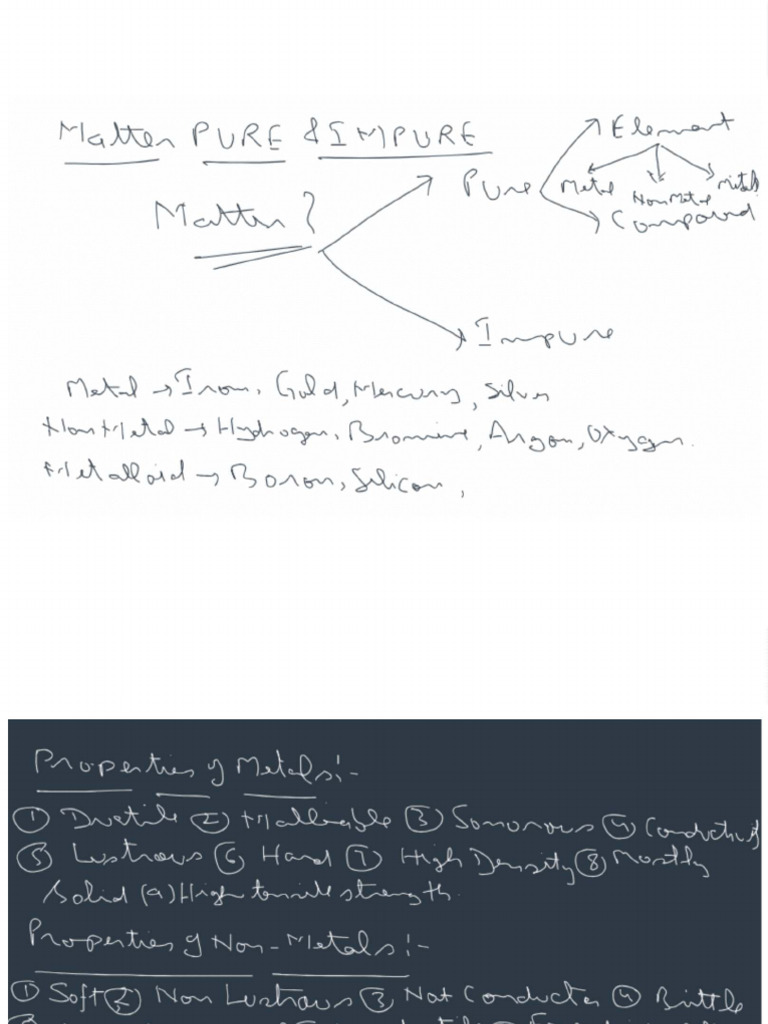 Matter PURE & IMPURE
Element
Pure
Metal
Non Metal
Compound
Matter ?
Impure
Metal → Iron, Gold, Mercury, Silver
Non Metal → Hydrogen, Bromine, Argon, Oxygen.
Metalloid → Boron, Silicon,
Properties of Metals:-
① Ductile ② Malleable ③ Sonorous ④
⑤ Lustrous ⑥ Hard ⑦ High Density ⑧ Mostly
Solid (9) High tensile strength.
Properties of Non-Metals:-
① Soft ② Non Lustrous ③ Not Conductor ④ Brittle